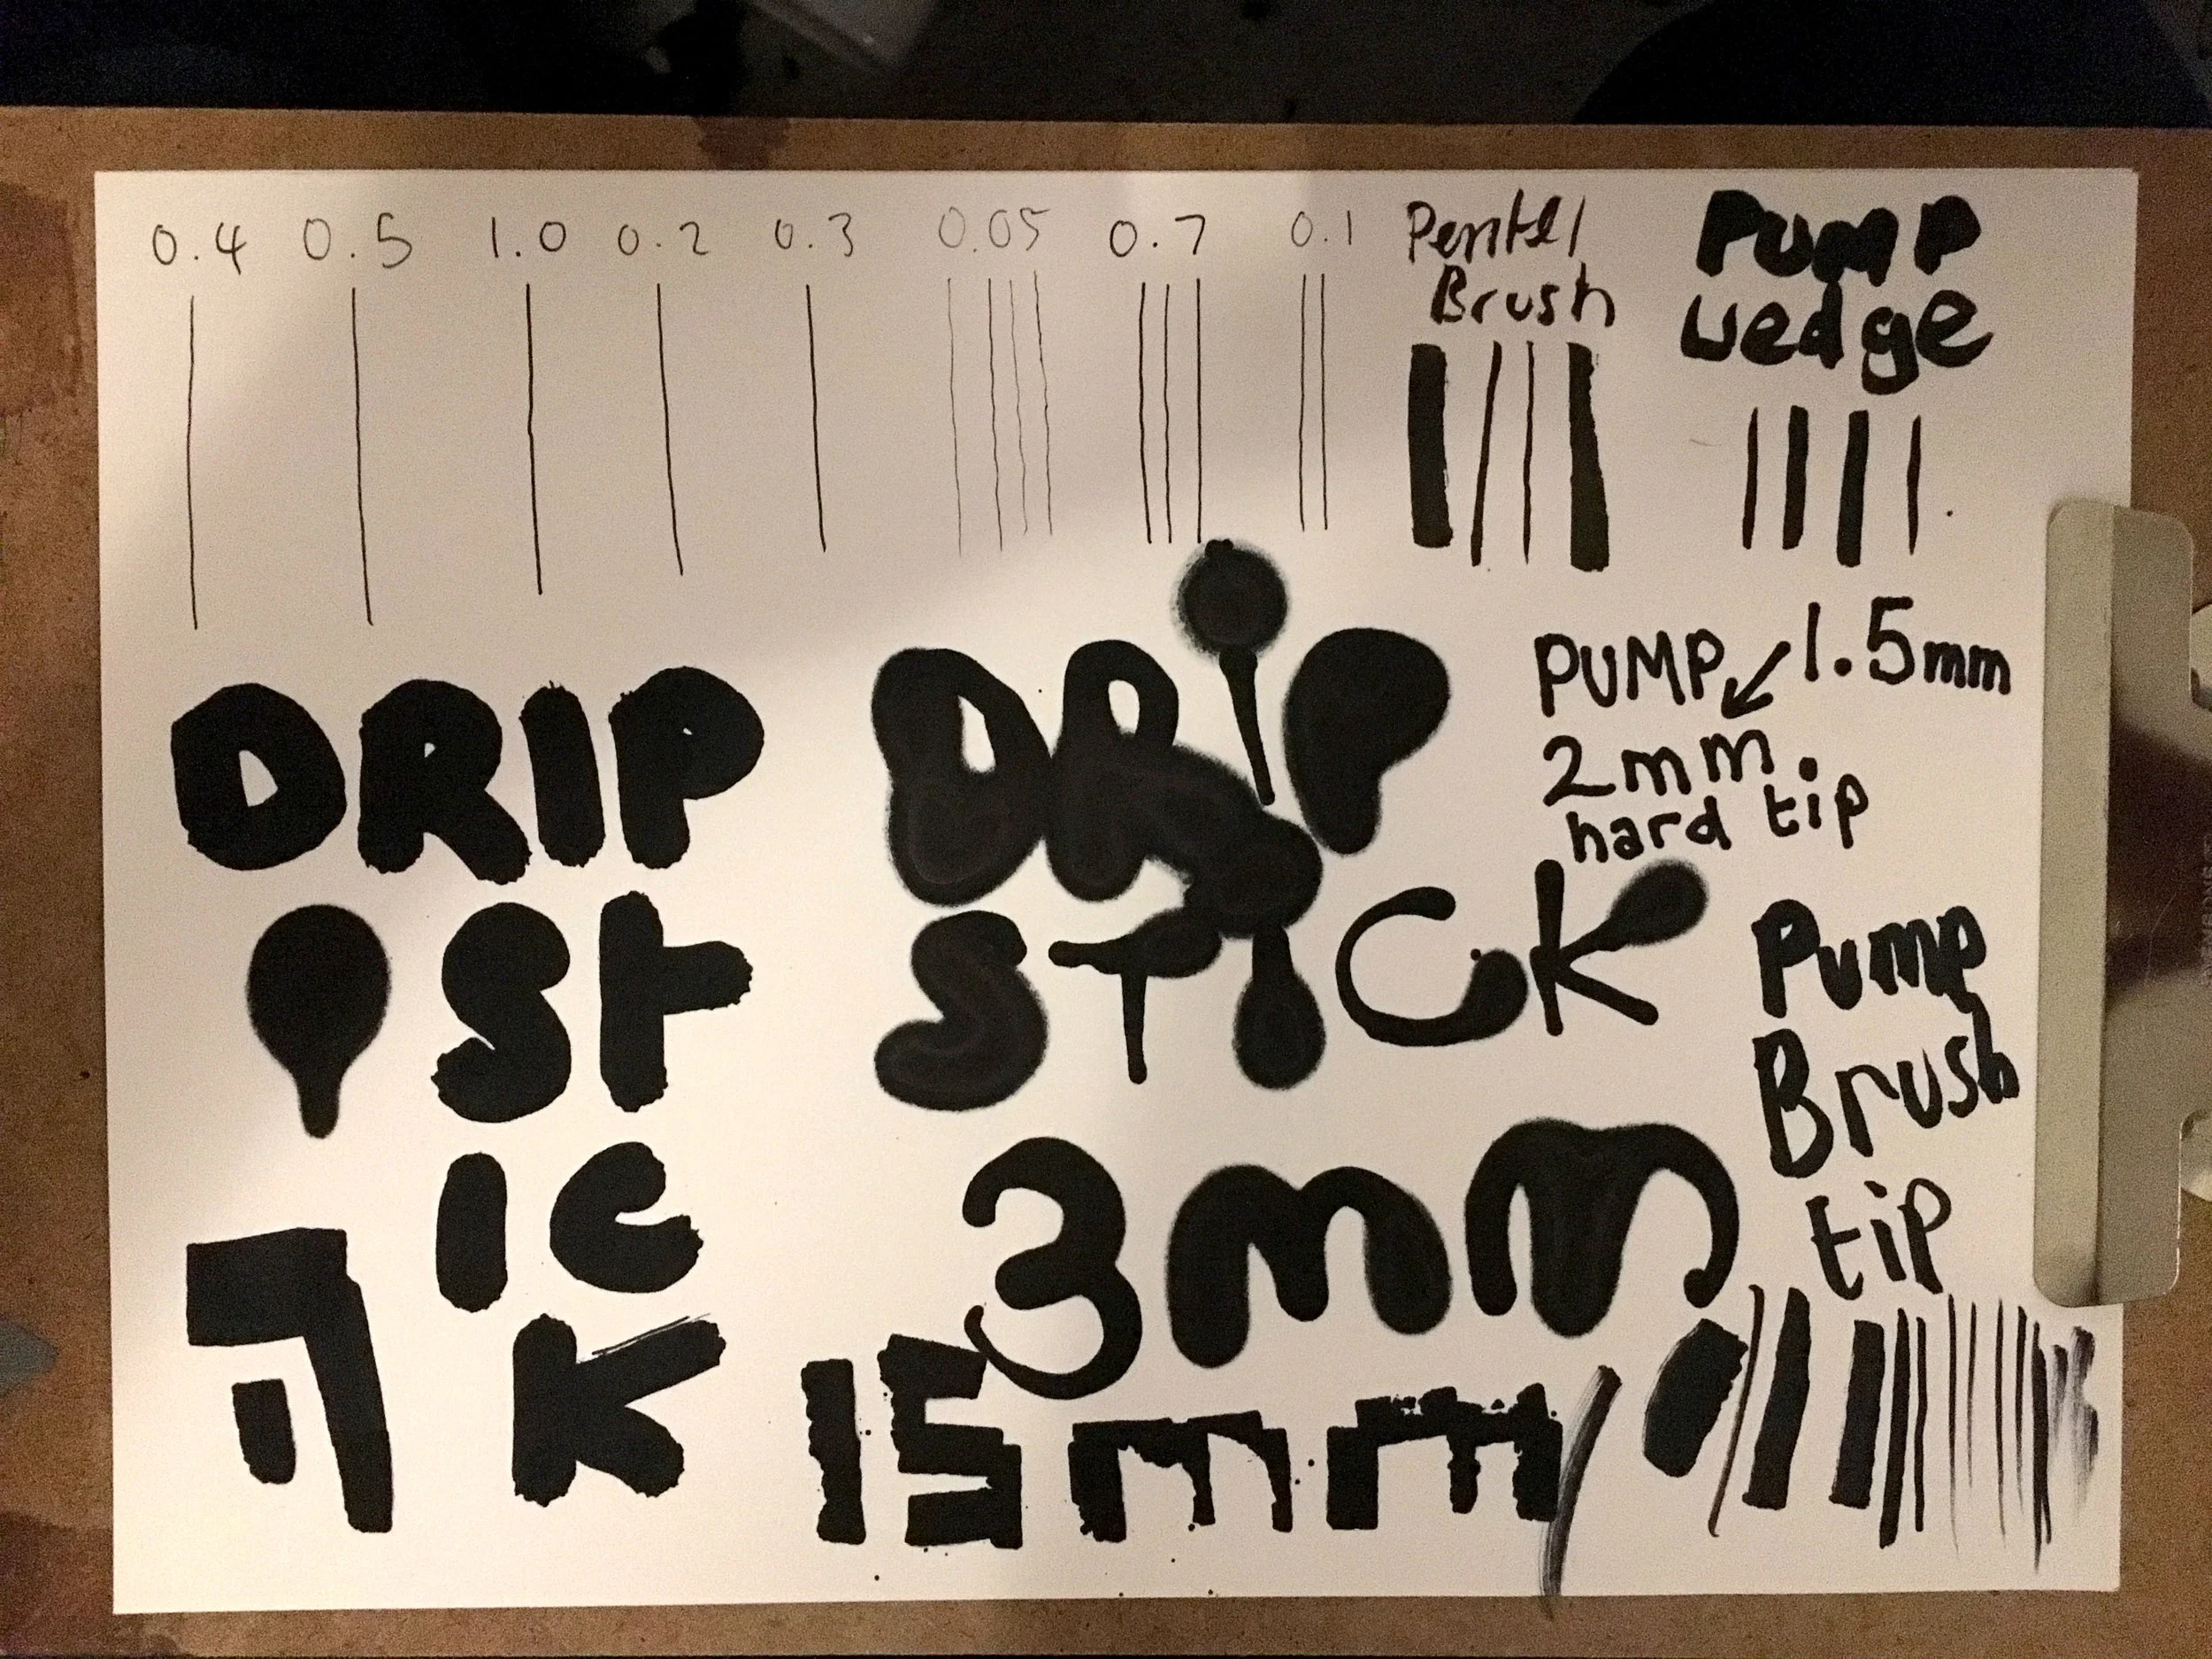 0.4 0.5 1.0 0.2 0.3 0.05 0.7 0.1
Pentel
Brush
PUMP
wedge
DRIP
St
IC
K
DRiP
STICK
3mm
15mm
PUMP 1.5mm
2mm.
hard tip
Pump
Brush
tip